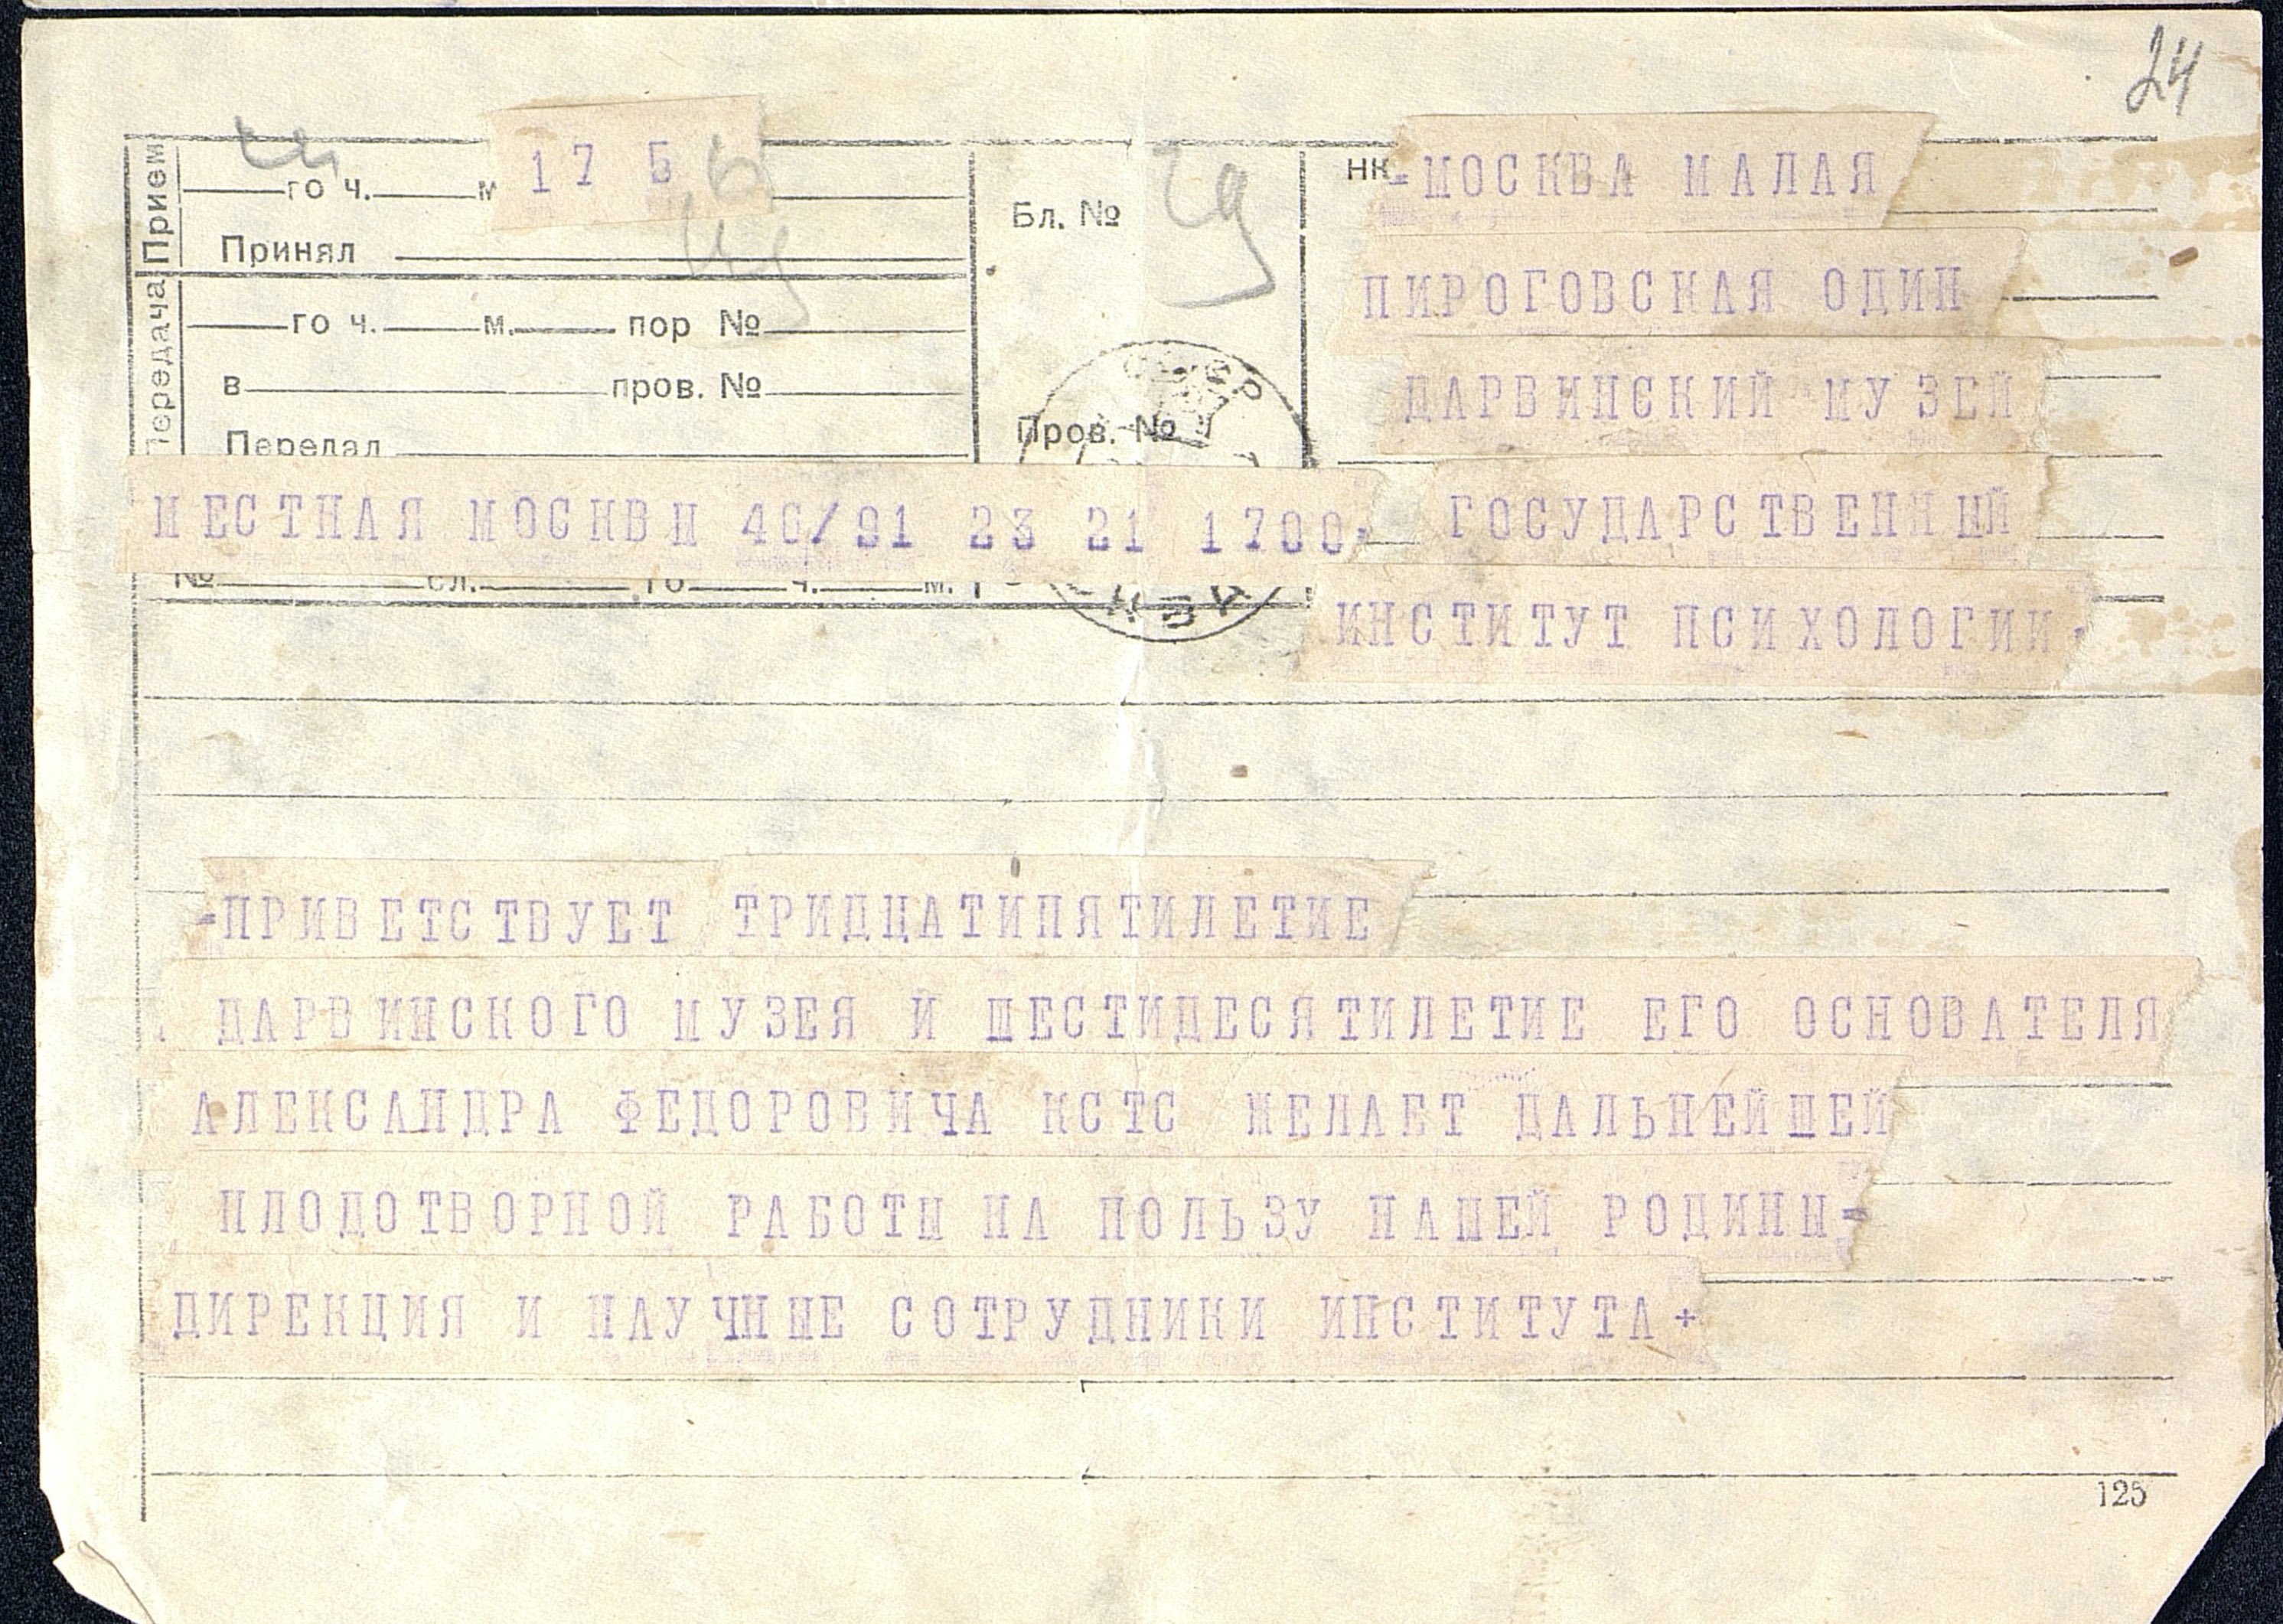 24
Прием
го ч. м 17 5
Принял
Передача
го ч. м. пор №
в пров. №
Передал
Бл. № 29
Пров. №
НК
=МОСКВА МАЛАЯ
ПИРОГОВСКАЯ ОДИН
ДАРВИНСКИЙ МУЗЕЙ
МЕСТНАЯ МОСКВЫ 40/91 23 21 1700=
ГОСУДАРСТВЕННЫЙ
ИНСТИТУТ ПСИХОЛОГИИ
№ сл. го ч. м.
=ПРИВЕТСТВУЕТ ТРИДЦАТИПЯТИЛЕТИЕ
ДАРВИНСКОГО МУЗЕЯ И ШЕСТИДЕСЯТИЛЕТИЕ ЕГО ОСНОВАТЕЛЯ
АЛЕКСАНДРА ФЕДОРОВИЧА КСТС ЖЕЛАЕТ ДАЛЬНЕЙШЕЙ
ПЛОДОТВОРНОЙ РАБОТЫ НА ПОЛЬЗУ НАШЕЙ РОДИНЫ=
ДИРЕКЦИЯ И НАУЧНЫЕ СОТРУДНИКИ ИНСТИТУТА+
125